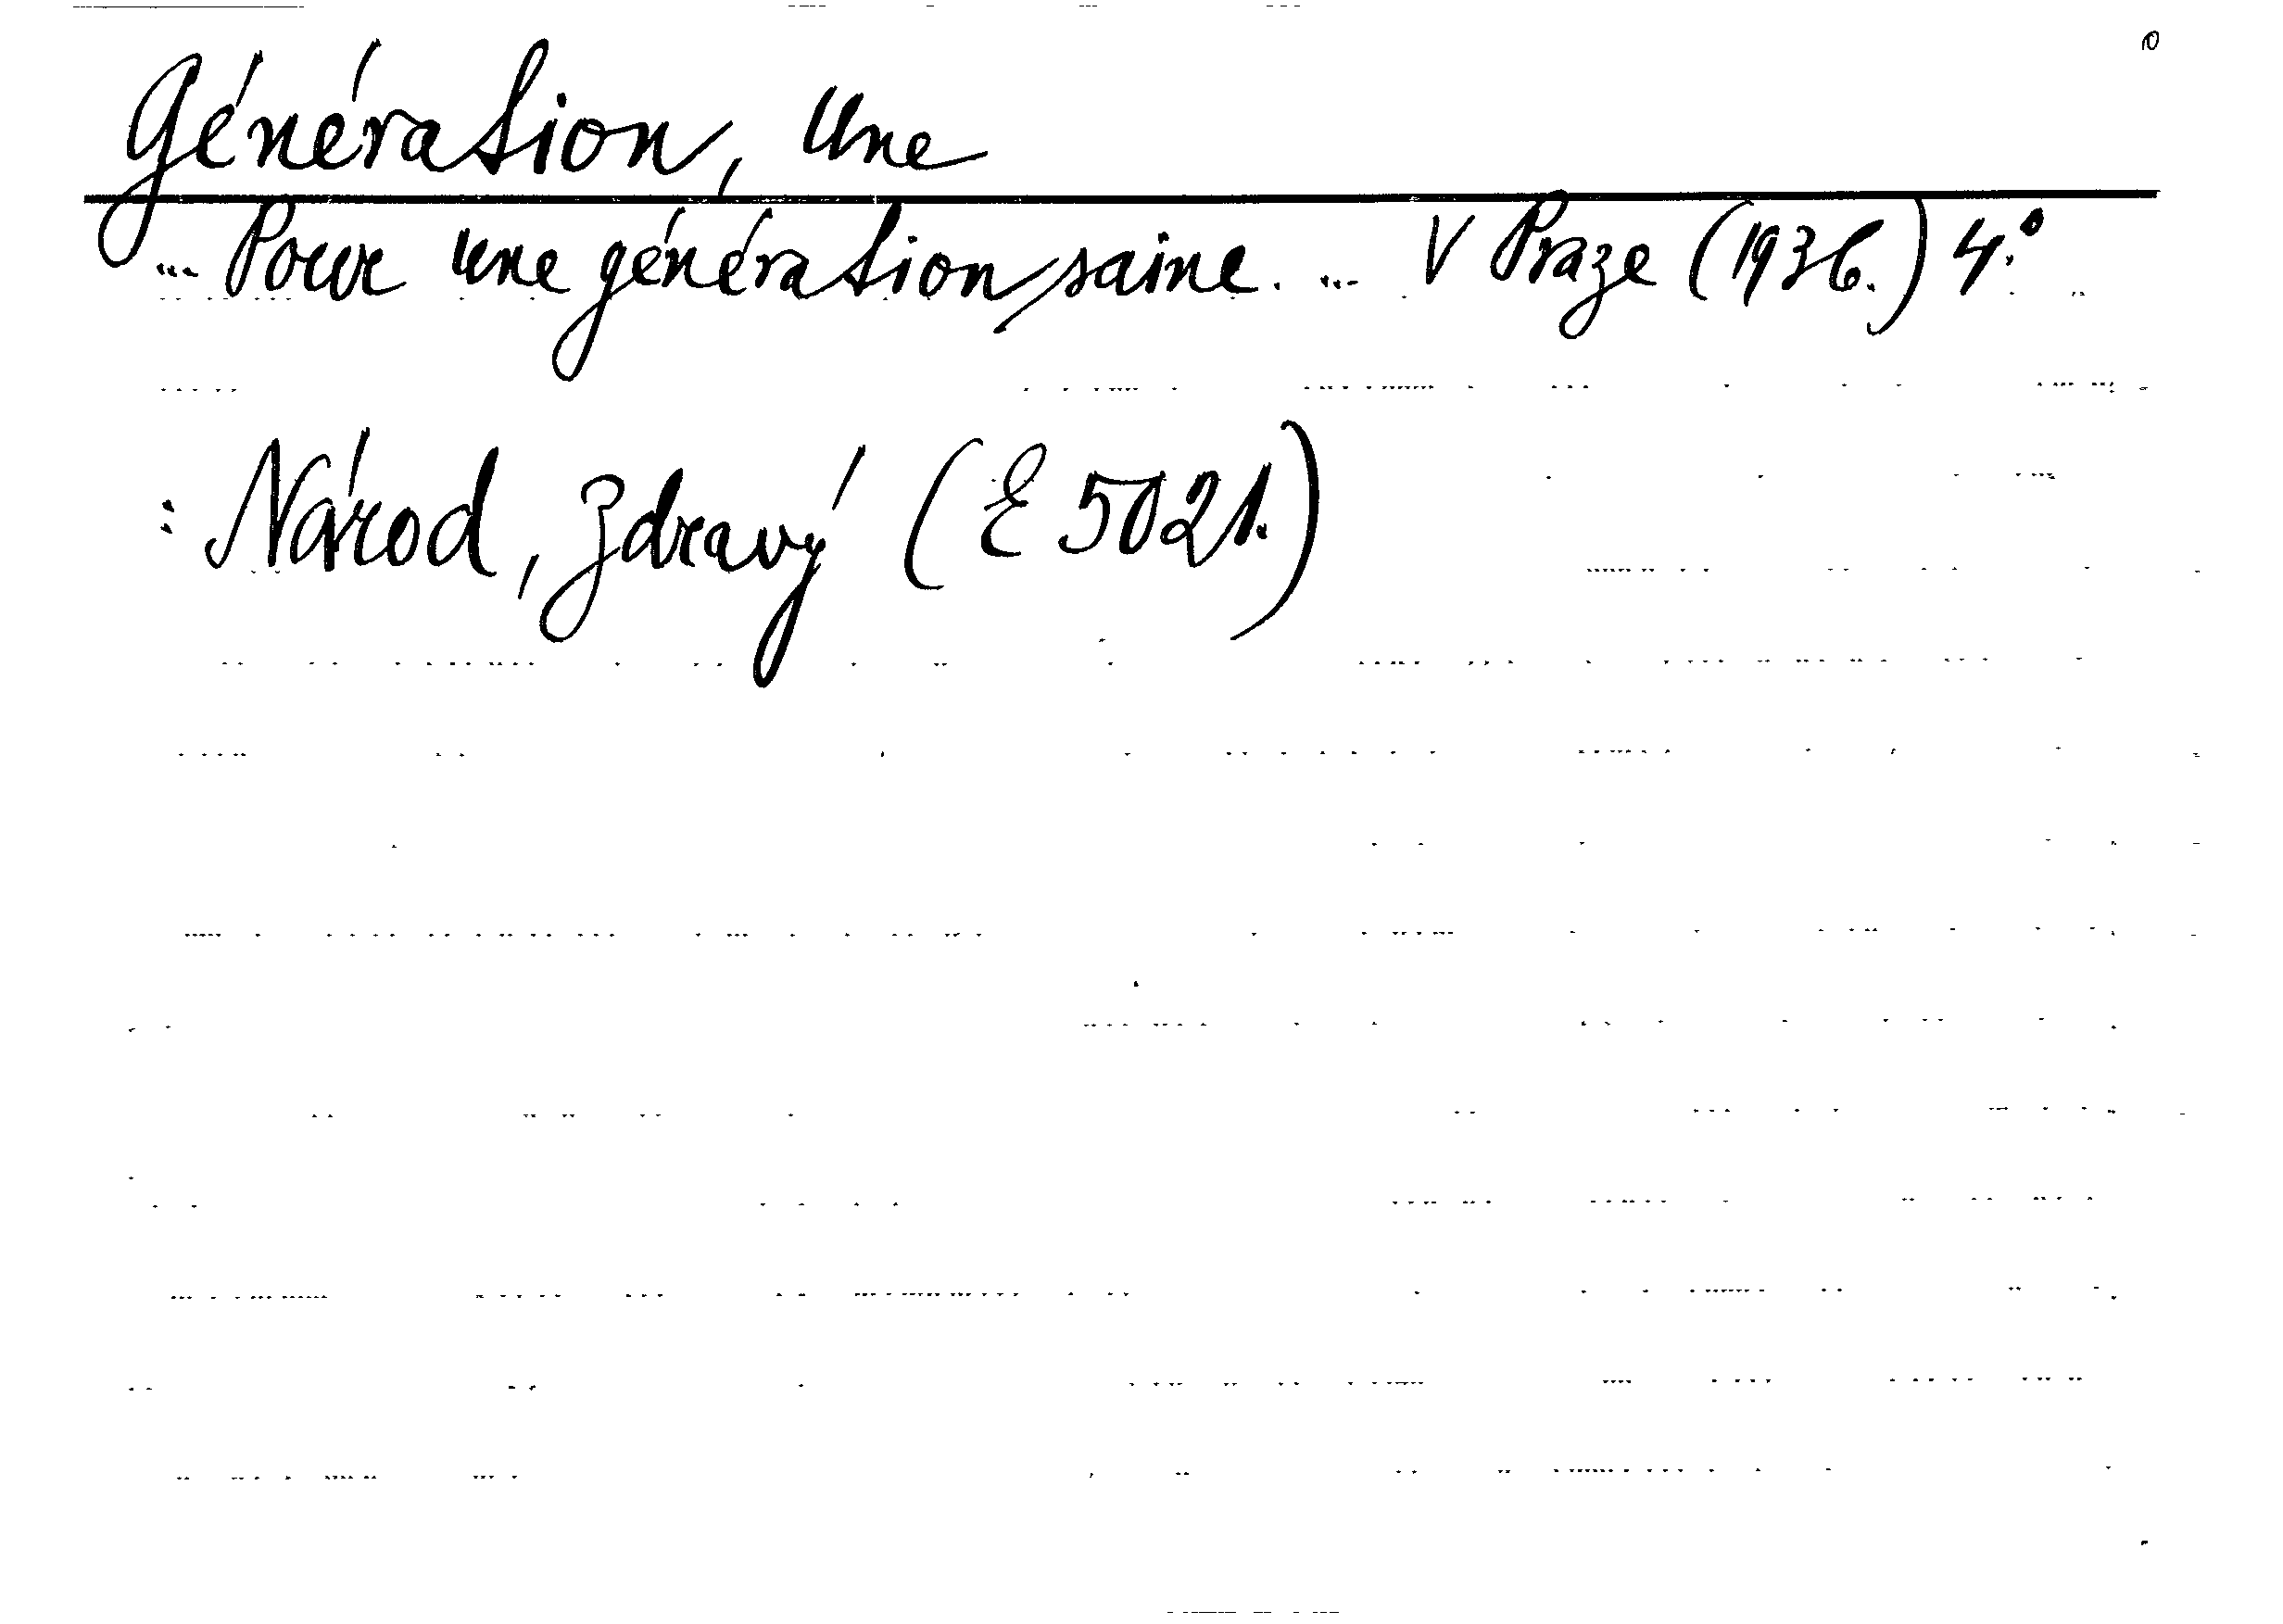 Génération, Une
... Pour une génération saine. ... V Praze (1936.) 4.°
: Národ, Zdravý (E 5021.)